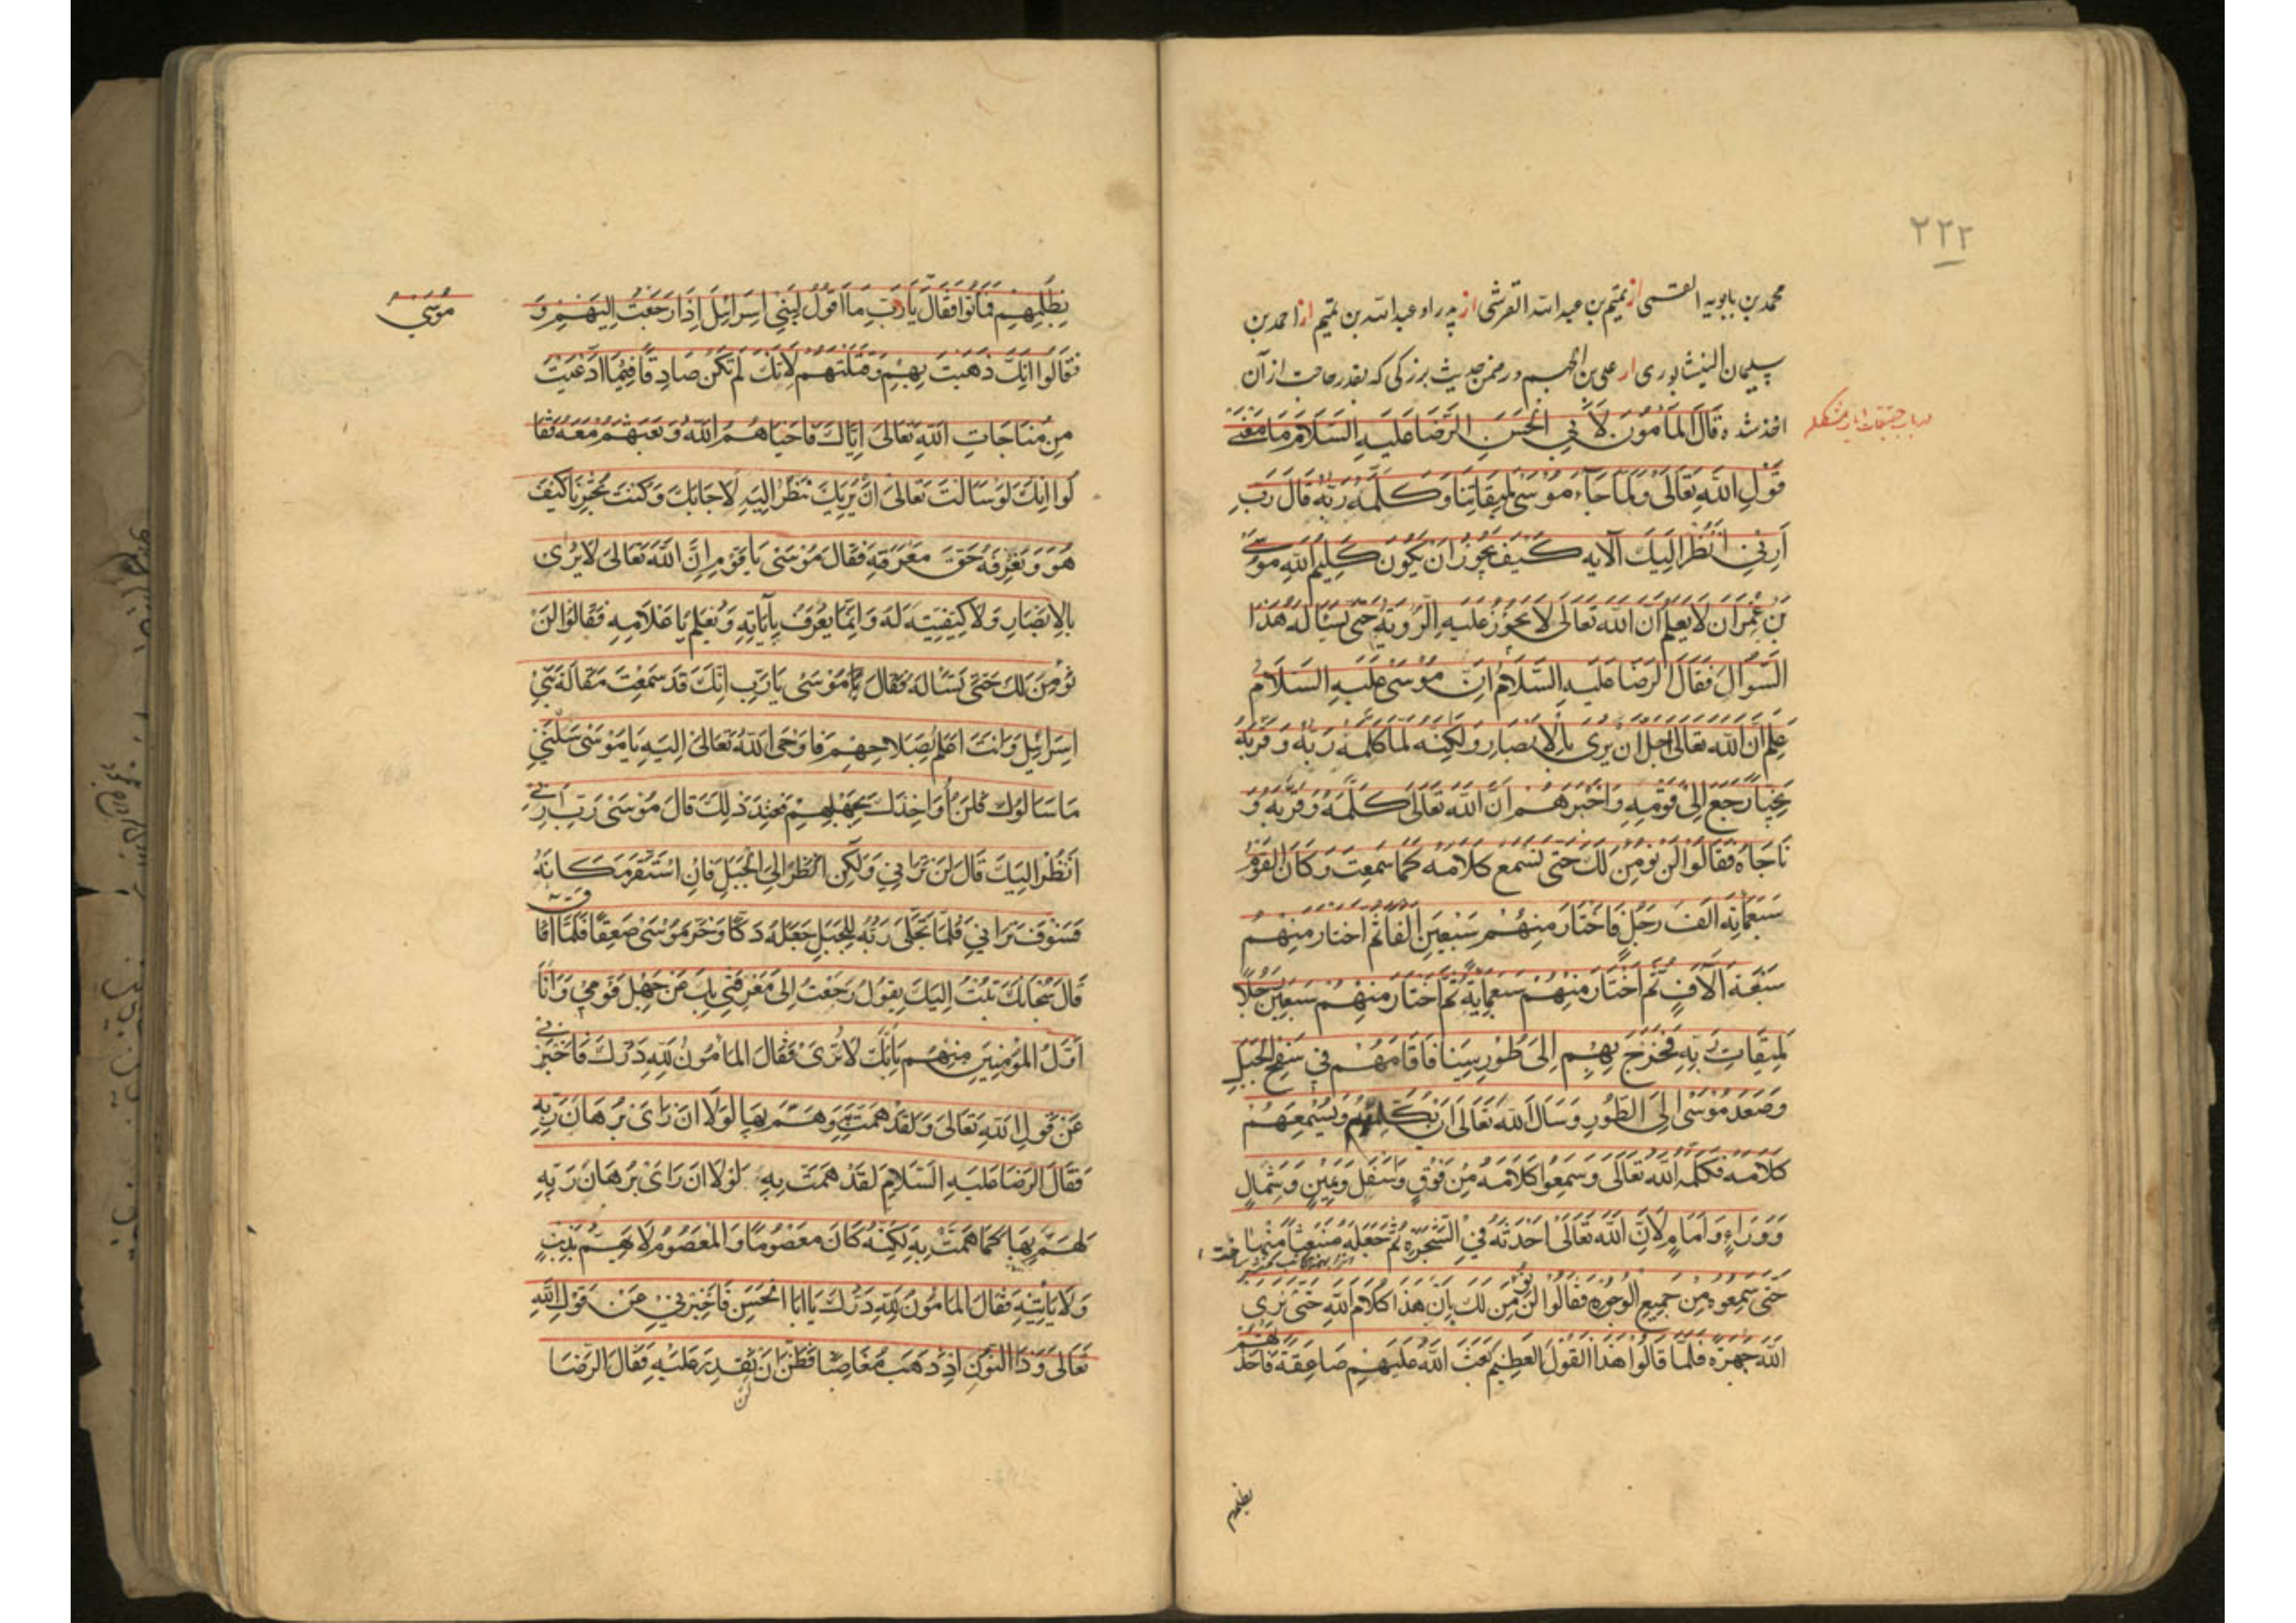 ٢٢٢
محمد بن بابویه القمی از تمیم بن عبد الله القرشی از پدر او عبد الله بن تمیم از احمد بن
سلیمان النیشابوری از علی بن الجهم در ضمن حدیث بزرکی که بقدر حاجت از آن
اخذ شد قَالَ المَأمُونَ لاَبِي الحَسَنِ الرِّضَا عَلَيهِ السَلَام مَا مَعْنَى
قَولِ اللهِ تَعَالَى وَلَمَّا جَآءَ مُوسَى لِمِيقَاتِنَا وَكَلَّمَهُ رَبُّهُ قَالَ رَبِّ
اَرِنِي اَنْظُر اِلَيكَ الآيه كَيفَ يَجُوزُ اَن يَكُونَ كَلِيمُ اللهِ مُوسَى
بْن عِمْرَان لَا يَعلَم اَنَّ اللهَ تَعَالَى لَا يَجُوزُ عَلَيهِ الرُّويَة حَتَى يَسْاَلَهُ هَذَا
السُّوَال فَقَالَ الرِّضَا عَلَيهِ السَّلَامُ اِنَّ مُوسَى عَلَيهِ السَّلَامُ
عَلِمَ اَنَّ اللهَ تَعَالَى اجلّ ان يُرَى بِالاَبصَارِ وَلَكِنَّه لَمَّا كَلَّمَهُ رَبُّهُ وَقَرَّبَهُ
نَجِيًّا رَجَعَ اِلَى قَوْمِهِ وَاَخْبَرَهُم اَنَّ اللهَ تَعَالَى كَلَّمَهُ وَقَرَّبَهُ وَ
نَاجَاهُ فَقَالُوا لَن نُومِنَ لَكَ حَتَى نَسْمَعَ كَلَامَهُ كَمَا سَمِعتَ وَكَانَ القَوْمُ
سَبعَمِائَه اَلفَ رَجُلٍ فَاخْتَارَ مِنهُم سَبْعِينَ اَلفًا ثُمَّ اختَارَ مِنهُم
سَبْعَةَ آلَافٍ ثُمَّ اخْتَارَ مِنهُم سَبعَمِايَةٍ ثُمَّ اختَارَ مِنهُم سَبعِينَ رَجُلًا
لِمِيقَاتِ رَبِّهِ فَخَرَجَ بِهِم اِلَى طُورِ سِينَا فَاَقَامَهُم فِي سَفحِ الجَبَلِ
وَصَعَدَ مُوسَى اِلَى الطُّورِ وَسَاَلَ اللهَ تَعَالَى اَن يُكَلِّمَهُ وَيُسْمِعَهُم
كَلَامَه فَكَلَّمَه اللهُ تَعَالَى وَسَمِعُوا كَلَامَهُ مِن فَوْقٍ وَسُفلٍ وَيَمِينٍ وَشِمَالٍ
وَوَرَاءٍ وَاَمَامٍ لِاَنَّ اللهَ تَعَالَى اَحْدَثَهُ فِي الشَّجَرَةِ ثُمَّ جَعَلَهُ مُنبَعِثًا مِنهَا
حَتَى سَمِعُوهُ مِن جَمِيعِ الوُجُوهِ فَقَالُوا لَن نُؤمِنَ لَكَ بِاَنَّ هَذَا كَلَامُ اللهِ حَتَى نَرَى
اللهَ جَهرَةً فَلَمَّا قَالُوا هَذَا القَولَ العَظِيمَ بَعَثَ اللهُ عَلَيهِم صَاعِقَةً فَاَخَذَتهُم
بظلمهم
بِظُلمِهِم فَمَاتُوا فَقَالَ يَا رَبِّ مَا اَقُولُ لِبَنِي اِسرَائِيلَ اِذَا رَجَعْتُ اِلَيهِم وَ
مُوسَى
فَقَالُوا اِنَّكَ ذَهَبتَ بِهِم وَقَتَلتَهُم لِاَنَّكَ لَم تَكُن صَادِقًا فِيمَا ادَّعَيتَ
مِن مُنَاجَاتِ اللهِ تَعَالَى اِيَّاكَ فَاَحيَاهُمُ اللهُ وَبَعَثَهُم مَعَهُ فَقَا
لُوا اِنَّكَ لَو سَاَلتَ تَعَالَى اَن يُرِيَكَ نَنظُر اِلَيهِ لَاَجَابَكَ وَكُنتَ تُخبِرُنَا كَيفَ
هُوَ وَنَعْرِفَهُ حَقَّ مَعْرِفَتِهِ فَقَالَ مُوسَى يَا قَومِ اِنَّ اللهَ تَعَالَى لَا يُرَى
بِالاَبصَارِ وَلَا كَيفِيَّتَه لَهُ وَاِنَّمَا يُعرَفُ بِآيَاتِهِ وَيُعلَمُ بِاَعلَامِهِ فَقَالُوا لَن
نُؤمِنَ لَكَ حَتَّى تَسْاَلَهُ فَقَالَ مُوسَى يَا رَبِّ اِنَّكَ قَد سَمِعتَ مَقَالَةَ بَنِي
اِسرَايِيلَ وَاَنتَ اَعلَمُ بِصَلَاحِهِم فَاَوحَى اللهُ تَعَالَى اِلَيهِ يَا مُوسَى سَلنِي
مَا سَاَلُوكَ فَلَن اُوَاخِذَكَ بِجَهلِهِم فَعِندَ ذَلِكَ قَالَ مُوسَى رَبِّ اَرِنِي
اَنظُر اِلَيكَ قَالَ لَن تَرَانِي وَلَكِن اُنظُر اِلَى الجَبَلِ فَاِنِ استَقَرَّ مَكَانَهُ
فَسَوفَ تَرَانِي فَلَمَّا تَجَلَّى رَبُّهُ لِلجَبَلِ جَعَلَهُ دَكًّا وَخَرَّ مُوسَى صَعِقًا فَلَمَّا اَفَا
قَالَ سُبحَانَكَ تُبتُ اِلَيكَ يَقُولُ رَجَعتُ اِلَى مَعرِفَتِي بِكَ عَن جَهلِ قَومِي وَاَنَا
اَوَّلُ المُؤمِنِينَ مِنهُم بِاَنَّكَ لَا تُرَى فَقَالَ المَامُونُ لِلّهِ دَرُّكَ فَاَخبِرنِي
عَن قَولِ اللهِ تَعَالَى وَلَقَد هَمَّت بِهِ وَهَمَّ بِهَا لَولَا اَن رَاَى بُرهَانَ رَبِّهِ
فَقَالَ الرِّضَا عَلَيهِ السَّلَامِ لَقَد هَمَّت بِهِ لَولَا اَن رَاَى بُرهَانَ رَبِّهِ
لَهَمَّ بِهَا كَمَا هَمَّت بِهِ لَكِنَّهُ كَانَ مَعصُومًا وَالمَعصُومُ لَا يَهِمُّ بِذَنبٍ
وَلَا يَاتِيهِ فَقَالَ المَامُونُ لِلّهِ دَرُّكَ يَا اَبَا الحَسَنِ فَاَخبِرنِي عَن قَولِ اللهِ
تَعَالَى وَذَا النُّونِ اِذ ذَهَبَ مُغَاضِبًا فَظَنَّ اَن لَن نَقدِرَ عَلَيهِ فَقَالَ الرِّضَا